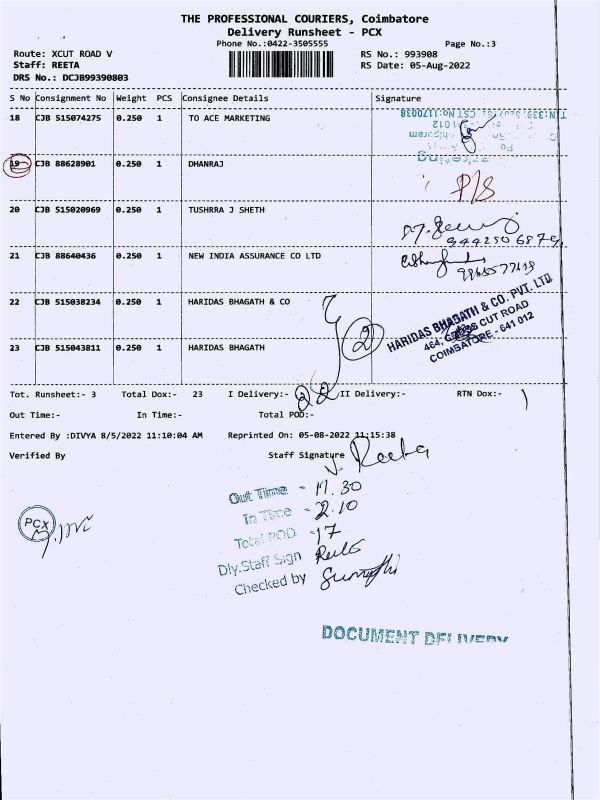 THE PROFESSIONAL COURIERS, Coimbatore
Delivery Runsheet - PCX
Phone No.:0422-3505555 Page No.:3
Route: XCUT ROAD V RS No.: 993908
Staff: REETA RS Date: 05-Aug-2022
DRS No.: DCJB99390803
S No Consignment No Weight PCS Consignee Details Signature
18 CJB 515074275 0.250 1 TO ACE MARKETING
19 CJB 88628901 0.250 1 DHANRAJ P/S
20 CJB 515020969 0.250 1 TUSHRRA J SHETH
21 CJB 88640436 0.250 1 NEW INDIA ASSURANCE CO LTD
22 CJB 515038234 0.250 1 HARIDAS BHAGATH & CO
2
HARIDAS BHAGATH & CO. PVT. LTD
464, CROSS CUT ROAD
COIMBATORE - 641 012
23 CJB 515043811 0.250 1 HARIDAS BHAGATH
Tot. Runsheet:- 3 Total Dox:- 23 I Delivery:- 22 II Delivery:- RTN Dox:- 1
Out Time:- In Time:- Total POD:-
Entered By :DIVYA 8/5/2022 11:10:04 AM Reprinted On: 05-08-2022 11:15:38
Verified By Staff Signature Reeta
Out Time - 11.30
In Time - 2.10
Total POD - 17
Dly.Staff Sign Reeta
Checked by
PCX
DOCUMENT DELIVERY